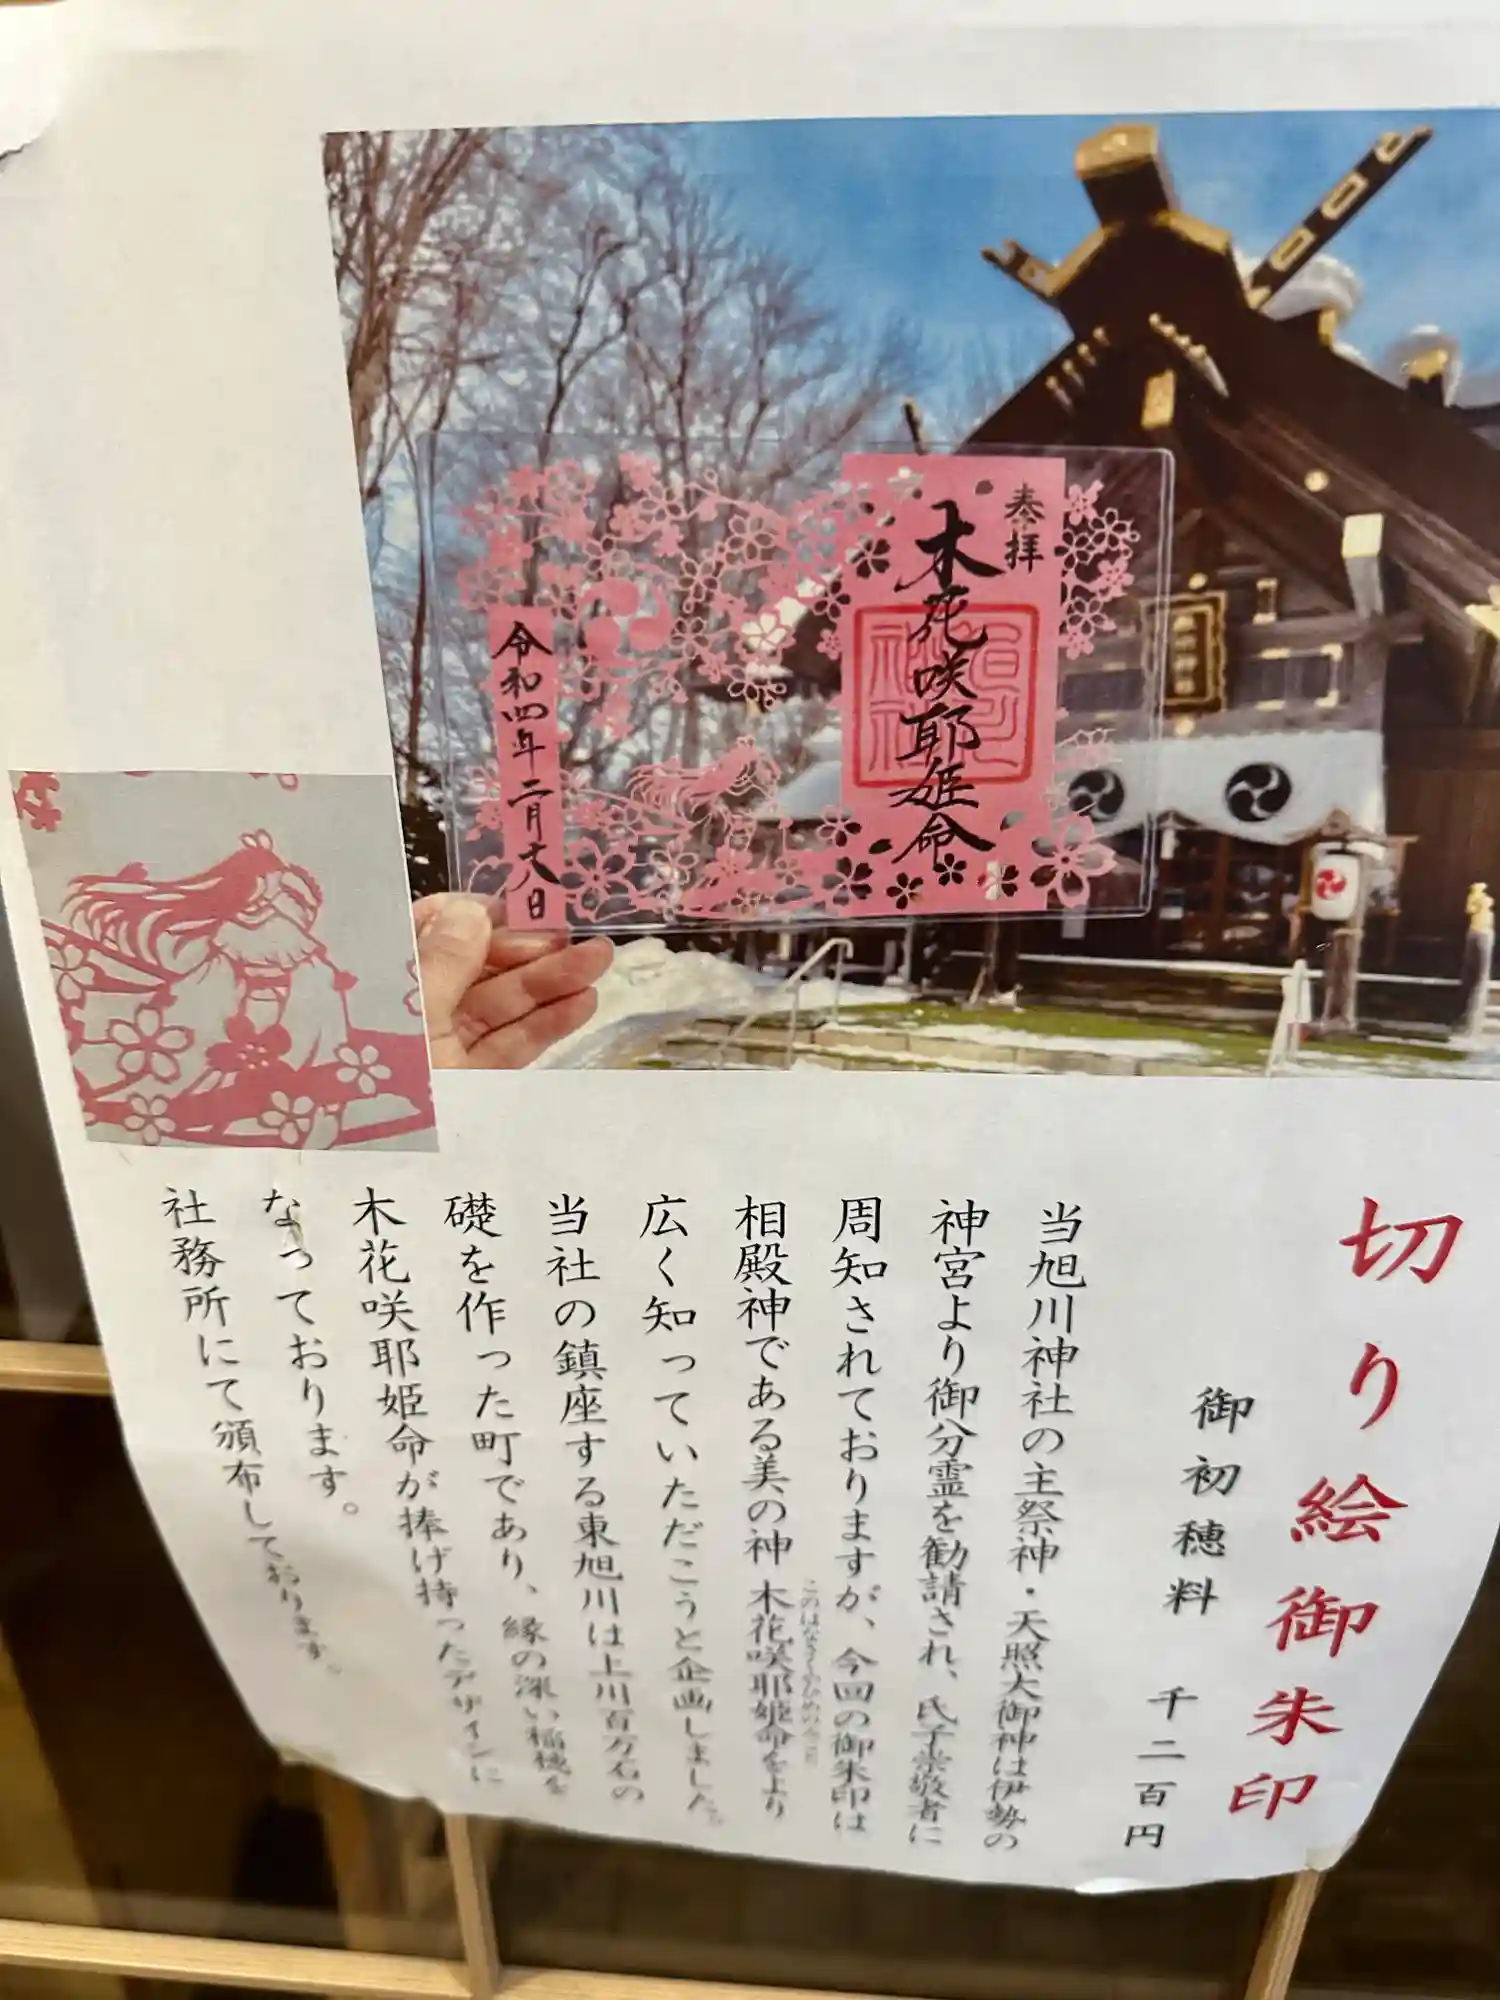 奉拝
木花咲耶姫命
令和四年二月十八日
切り絵御朱印
御初穂料 千二百円
当旭川神社の主祭神・天照大御神は伊勢の
神宮より御分霊を勧請され、氏子崇敬者に
周知されておりますが、今回の御朱印は
相殿神である美の神 木花咲耶姫命をより
このはなさくやひめのみこと
広く知っていただこうと企画しました。
当社の鎮座する東旭川は上川百万石の
礎を作った町であり、縁の深い稲穂を
木花咲耶姫命が捧げ持ったデザインに
なっております。
社務所にて頒布しております。